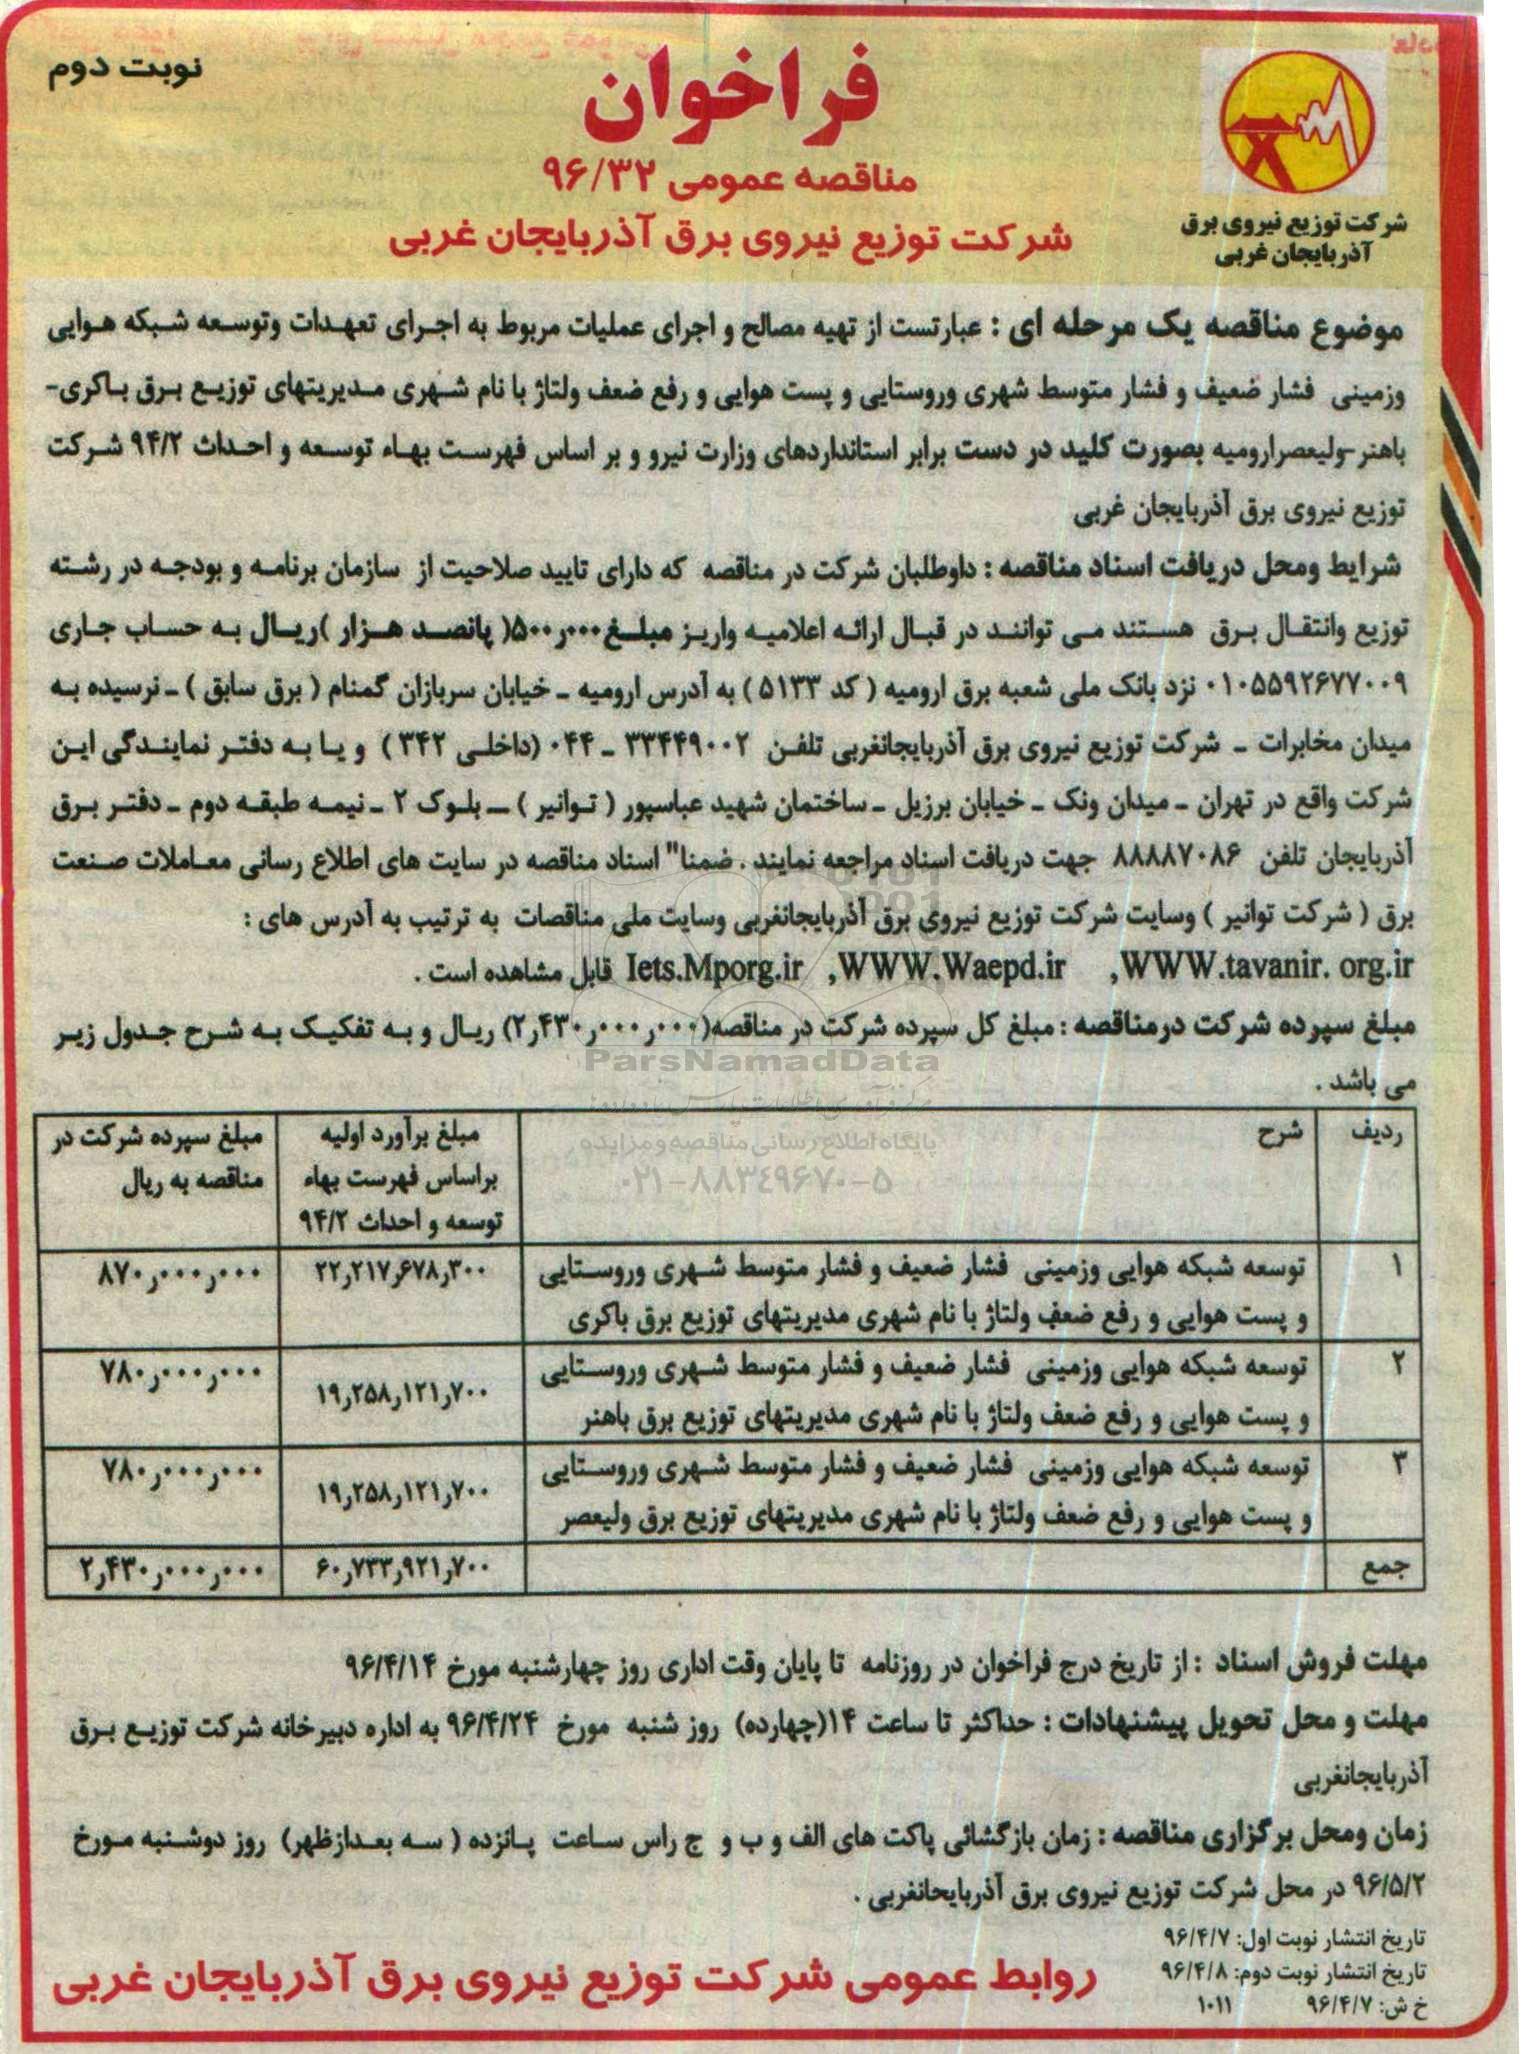 نوبت دوم
فراخوان
مناقصه عمومی ۹۶/۳۲
شرکت توزیع نیروی برق آذربایجان غربی
شرکت توزیع نیروی برق
آذربایجان غربی
موضوع مناقصه یک مرحله ای : عبارتست از تهیه مصالح و اجرای عملیات مربوط به اجرای تعهدات وتوسعه شبکه هوایی
وزمینی فشار ضعیف و فشار متوسط شهری وروستایی و پست هوایی و رفع ضعف ولتاژ با نام شهری مدیریتهای توزیع برق باکری-
باهنر-ولیعصرارومیه بصورت کلید در دست برابر استانداردهای وزارت نیرو و بر اساس فهرست بهاء توسعه و احداث ۹۴/۲ شرکت
توزیع نیروی برق آذربایجان غربی
شرایط ومحل دریافت اسناد مناقصه : داوطلبان شرکت در مناقصه که دارای تایید صلاحیت از سازمان برنامه و بودجه در رشته
توزیع وانتقال برق هستند می توانند در قبال ارائه اعلامیه واریز مبلغ ۵۰۰ر۰۰۰( پانصد هزار )ریال به حساب جاری
۰۱۰۵۵۹۲۶۷۷۰۰۹ نزد بانک ملی شعبه برق ارومیه ( کد ۵۱۳۳ ) به آدرس ارومیه - خیابان سربازان گمنام ( برق سابق ) - نرسیده به
میدان مخابرات - شرکت توزیع نیروی برق آذربایجانغربی تلفن ۳۳۴۴۹۰۰۲ - ۰۴۴ (داخلی ۳۴۲ ) و یا به دفتر نمایندگی این
شرکت واقع در تهران - میدان ونک - خیابان برزیل - ساختمان شهید عباسپور ( توانیر ) - بلوک ۲ - نیمه طبقه دوم - دفتر برق
آذربایجان تلفن ۸۸۸۸۷۰۸۶ جهت دریافت اسناد مراجعه نمایند . ضمنا" اسناد مناقصه در سایت های اطلاع رسانی معاملات صنعت
برق ( شرکت توانیر ) وسایت شرکت توزیع نیروی برق آذربایجانغربی وسایت ملی مناقصات به ترتیب به آدرس های :
WWW.tavanir. org.ir, WWW.Waepd.ir, Iets.Mporg.ir قابل مشاهده است .
مبلغ سپرده شرکت درمناقصه : مبلغ کل سپرده شرکت در مناقصه(۲ر۴۳۰ر۰۰۰ر۰۰۰) ریال و به تفکیک به شرح جدول زیر
می باشد .
ParsNamadData
پایگاه اطلاع رسانی مناقصه و مزایده
۰۲۱-۸۸۳۴۹۶۷۰-۵
ردیف شرح مبلغ برآورد اولیه براساس فهرست بهاء توسعه و احداث ۹۴/۲ مبلغ سپرده شرکت در مناقصه به ریال
۱ توسعه شبکه هوایی وزمینی فشار ضعیف و فشار متوسط شهری وروستایی ۲۲ر۲۱۷ر۶۷۸ر۳۰۰ ۸۷۰ر۰۰۰ر۰۰۰
و پست هوایی و رفع ضعف ولتاژ با نام شهری مدیریتهای توزیع برق باکری
۲ توسعه شبکه هوایی وزمینی فشار ضعیف و فشار متوسط شهری وروستایی ۱۹ر۲۵۸ر۱۲۱ر۷۰۰ ۷۸۰ر۰۰۰ر۰۰۰
و پست هوایی و رفع ضعف ولتاژ با نام شهری مدیریتهای توزیع برق باهنر
۳ توسعه شبکه هوایی وزمینی فشار ضعیف و فشار متوسط شهری وروستایی ۱۹ر۲۵۸ر۱۲۱ر۷۰۰ ۷۸۰ر۰۰۰ر۰۰۰
و پست هوایی و رفع ضعف ولتاژ با نام شهری مدیریتهای توزیع برق ولیعصر
جمع ۶۰ر۷۳۳ر۹۲۱ر۷۰۰ ۲ر۴۳۰ر۰۰۰ر۰۰۰
مهلت فروش اسناد : از تاریخ درج فراخوان در روزنامه تا پایان وقت اداری روز چهارشنبه مورخ ۹۶/۴/۱۴
مهلت و محل تحویل پیشنهادات : حداکثر تا ساعت ۱۴(چهارده) روز شنبه مورخ ۹۶/۴/۲۴ به اداره دبیرخانه شرکت توزیع برق
آذربایجانغربی
زمان ومحل برگزاری مناقصه : زمان بازگشائی پاکت های الف و ب و ج راس ساعت پانزده ( سه بعدازظهر) روز دوشنبه مورخ
۹۶/۵/۲ در محل شرکت توزیع نیروی برق آذربایجانغربی .
تاریخ انتشار نوبت اول: ۹۶/۴/۷
تاریخ انتشار نوبت دوم: ۹۶/۴/۸
خ ش: ۹۶/۴/۷ ۱۰۱۱
روابط عمومی شرکت توزیع نیروی برق آذربایجان غربی